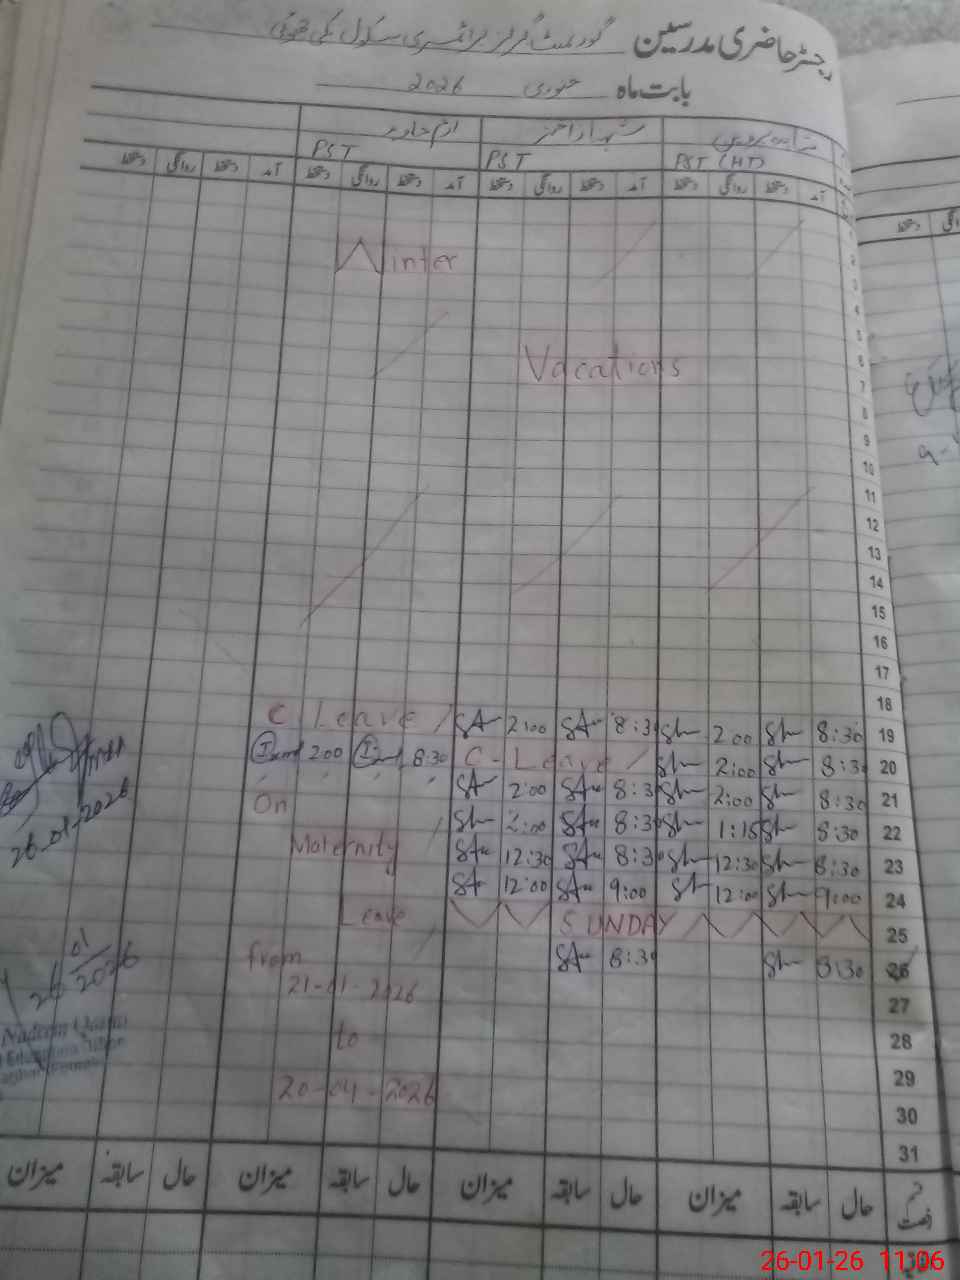 رجسٹر حاضری مدرسین گورنمنٹ گرلز پرائمری سکول
بابت ماہ جنوری 2026
PST (HT) PST PST
آمد دستخط روانگی دستخط آمد دستخط روانگی دستخط آمد دستخط روانگی دستخط آمد دستخط روانگی دستخط
1
2
Winter
3
4
5
6
Vacations
7
8
9
10
11
12
13
14
15
16
17
18
C Leave / SA 2:00 SA 8:30 Sh 2:00 Sh 8:30 19
2:00 8:30 C-Leave / Sh 2:00 Sh 8:30 20
On SA 2:00 SA 8:30 Sh 2:00 Sh 8:30 21
Sh 2:00 SA 8:30 Sh 1:15 Sh 8:30 22
Maternity SA 12:30 SA 8:30 Sh 12:30 Sh 8:30 23
SA 12:00 SA 9:00 Sh 12:00 Sh 9:00 24
Leave SUNDAY 25
from SA 8:30 Sh 8:30 26
21-01-2026 27
to 28
29
20-04-2026 30
31
26-01-2026
26 01 2026
Nadeem
حال سابقہ میزان حال سابقہ میزان حال سابقہ میزان حال سابقہ میزان
26-01-26 11:06